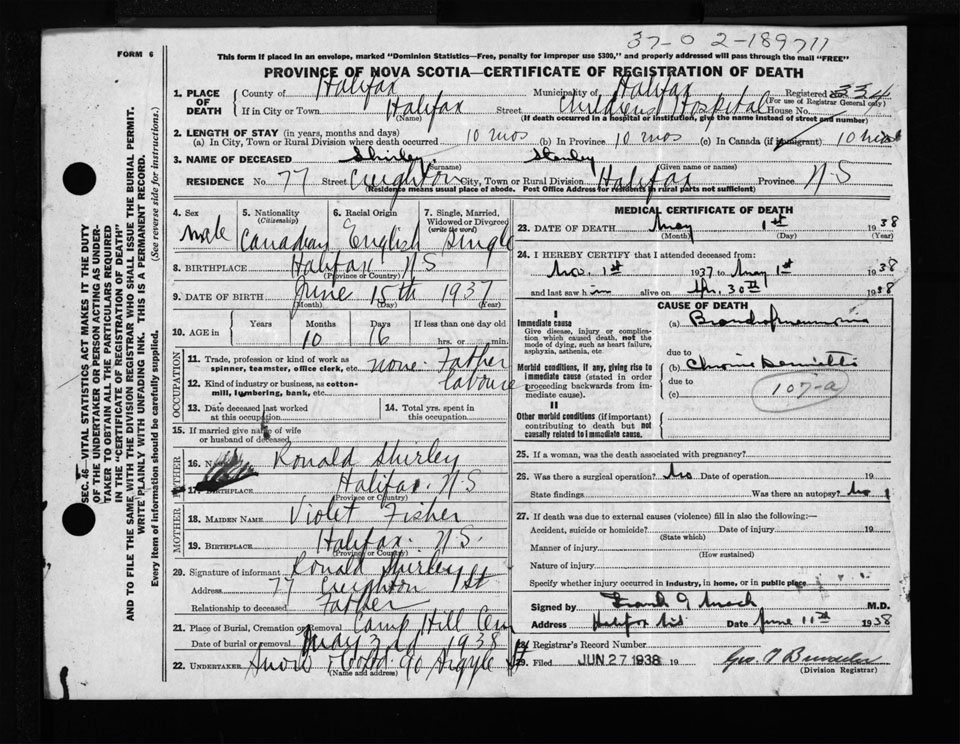 37-0 2-189711
FORM 6
This form if placed in an envelope, marked "Dominion Statistics—Free, penalty for improper use $300," and properly addressed will pass through the mail "FREE"
PROVINCE OF NOVA SCOTIA—CERTIFICATE OF REGISTRATION OF DEATH
1. PLACE OF DEATH County of Halifax Municipality of Halifax Registered No. 334
(For use of Registrar General only)
If in City or Town Halifax Street Childrens Hospital House No.
(Name) (If death occurred in a hospital or institution, give the name instead of street and number)
2. LENGTH OF STAY (in years, months and days)
(a) In City, Town or Rural Division where death occurred. 10 mos (b) In Province 10 mos (c) In Canada (if immigrant) 10 mos
3. NAME OF DECEASED Shirley Stanley
(Surname) (Given name or names)
RESIDENCE No. 77 Street Creighton City, Town or Rural Division Halifax Province N-S
(Residence means usual place of abode. Post Office Address for residents in rural parts not sufficient)
4. Sex 5. Nationality (Citizenship) 6. Racial Origin 7. Single, Married, Widowed or Divorced (write the word)
Male Canadian English Single
8. BIRTHPLACE Halifax N S
(Province or Country)
9. DATE OF BIRTH June 15th 1937
(Month) (Day) (Year)
10. AGE in Years Months Days If less than one day old
10 16 hrs. or min.
OCCUPATION
11. Trade, profession or kind of work as spinner, teamster, office clerk, etc. none - Father
12. Kind of industry or business, as cotton-mill, lumbering, bank, etc. labourer
13. Date deceased last worked at this occupation
14. Total yrs. spent in this occupation
15. If married give name of wife or husband of deceased
FATHER
16. Name Ronald Shirley
17. Birthplace Halifax. N-S
(Province or Country)
MOTHER
18. MAIDEN NAME Violet Fisher
19. BIRTHPLACE Halifax. N.S.
(Province or Country)
20. Signature of informant Ronald Shirley
Address 77 Creighton St
Relationship to deceased Father
21. Place of Burial, Cremation or Removal Camp Hill Cem
Date of burial or removal May 3rd 1938
22. UNDERTAKER Snow & Co Ltd. 90 Argyle St
(Name and address)
MEDICAL CERTIFICATE OF DEATH
23. DATE OF DEATH May 1st 1938
(Month) (Day) (Year)
24. I HEREBY CERTIFY that I attended deceased from:
Nov. 1st 1937 to May 1st 1938
and last saw him alive on Apr. 30th 1938
CAUSE OF DEATH
I
Immediate cause
Give disease, injury or complication which caused death, not the mode of dying, such as heart failure, asphyxia, asthenia, etc.
(a) Bronchopneumonia
due to
Morbid conditions, if any, giving rise to immediate cause (stated in order proceeding backwards from immediate cause).
(b) Chronic Dermatitis
due to
(c) 107-a
II
Other morbid conditions (if important) contributing to death but not causally related to immediate cause.
25. If a woman, was the death associated with pregnancy?
26. Was there a surgical operation? No Date of operation 19
State findings Was there an autopsy? No
27. If death was due to external causes (violence) fill in also the following:—
Accident, suicide or homicide? Date of injury 19
(State which)
Manner of injury
(How sustained)
Nature of injury
Specify whether injury occurred in industry, in home, or in public place
Signed by Frank G Mack M.D.
Address Halifax N.S. Date June 11th 1938
28. Registrar's Record Number
29. Filed JUN 27 1938 19
(Division Registrar)
SEC. 46—VITAL STATISTICS ACT MAKES IT THE DUTY
OF THE UNDERTAKER OR PERSON ACTING AS UNDERTAKER TO OBTAIN ALL THE PARTICULARS REQUIRED
IN THE "CERTIFICATE OF REGISTRATION OF DEATH"
AND TO FILE THE SAME WITH THE DIVISION REGISTRAR WHO SHALL ISSUE THE BURIAL PERMIT.
WRITE PLAINLY WITH UNFADING INK. THIS IS A PERMANENT RECORD.
Every item of information should be carefully supplied. (See reverse side for instructions.)